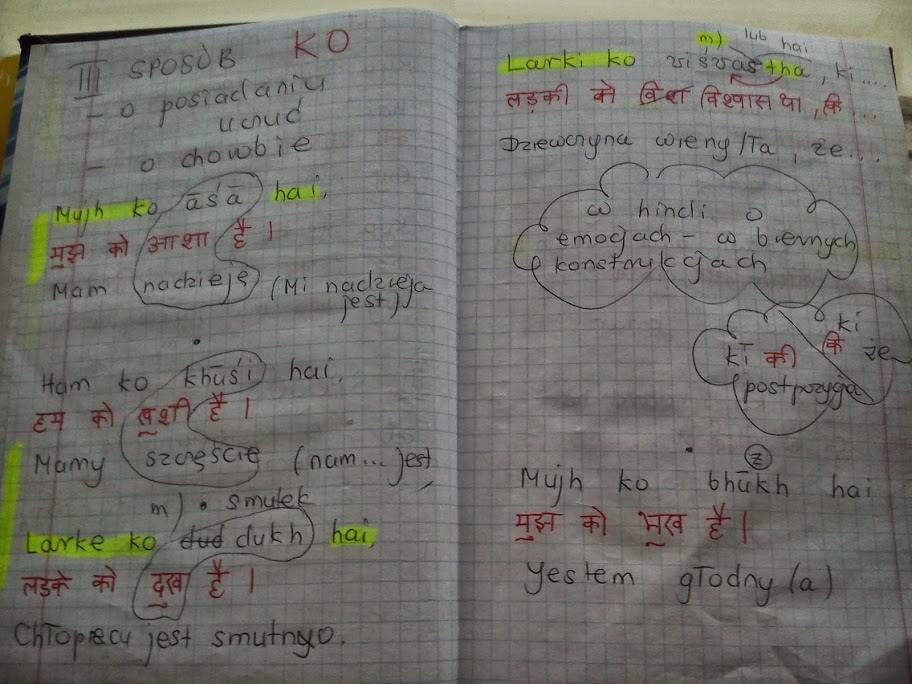 III SPOSÓB KO
- o posiadaniu
uczuć
- o chorobie
Mujh ko āśā hai,
मुझ को आशा है ।
Mam nadzieję (Mi nadzieja
jest)
Ham ko khuśī hai,
हम को ख़ुशी है ।
Mamy szczęście (nam... jest
m) • smutek
Larke ko dud dukh hai,
लड़के को दुख है ।
Chłopcu jest smutnyo.
m) lub hai
Larki ko viśvās tha, ki...
लड़की को विश्वास था, कि ...
Dziewczyna wierzyła, że...
w hindi o
emocjach - w biernych
konstrukcjach
ki
कि że
kī की
(postpozycja
ż
Mujh ko bhūkh hai
मुझ को भूख है ।
Yestem głodny (a)